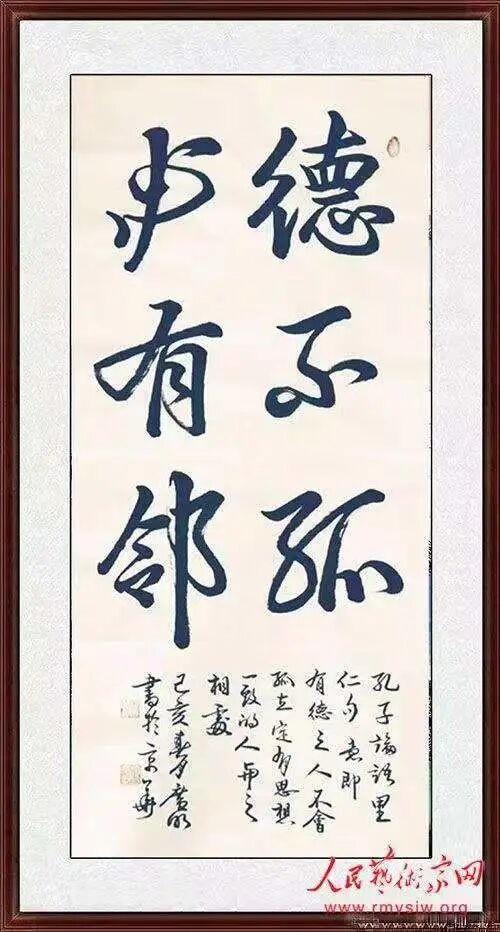 德不孤
必有邻
孔子論語里
仁句意即
有德之人不會
孤立定有思想
一致的人与之
相處
己亥
書於京華
人民藝術家网
www.rmysjw.org